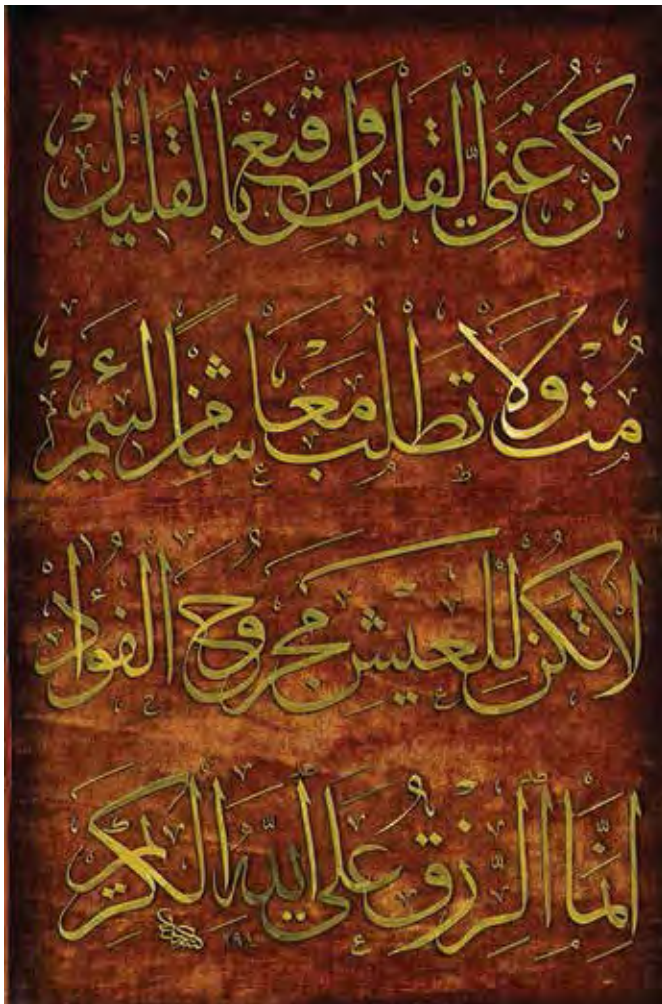 كُن غَنِيَّ القَلبِ وَاقنَع بِالقَليل
مُت وَلا تَطلُب مَعاشاً مِن لَئيم
لا تَكُن لِلعَيشِ مَجروحَ الفُؤاد
اِنَّمَا الرِّزقُ عَلَى اللّٰهِ الكَريم